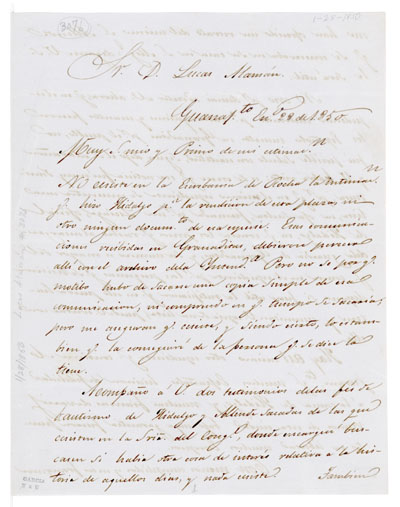 307
1-28-1850
Sr. D. Lucas Alamán.
Guanajto Eno 28 de 1850.
Muy Sr. mio y Primo de mi estimaon
No existe en la Escribanía de Rocha la intimaon
q. hizo Hidalgo pa la rendicion de esa plaza, ni
otro ningun documto de esa especie. Esas comunica-
ciones recibidas en Granaditas, debieron perecer
allí con el archivo de la Intenda. Pero no sé por q.
motivo hubo de sacarse una copia simple de esa
comunicacion, ni comprendo en q. tiempo se sacaria;
pero me aseguran q. existe, y siendo cierto, lo es tam-
bien q. la conseguiré de la persona q. se dice la
tiene.
Acompaño á V. dos testimonios de las fés de
bautismo de Hidalgo y Allende sacadas de las que
existen en la Sria. del Congo, donde encargué bus-
casen si habia otra cosa de interés relativa a la his-
toria de aquellos dias, y nada existe. Tambien